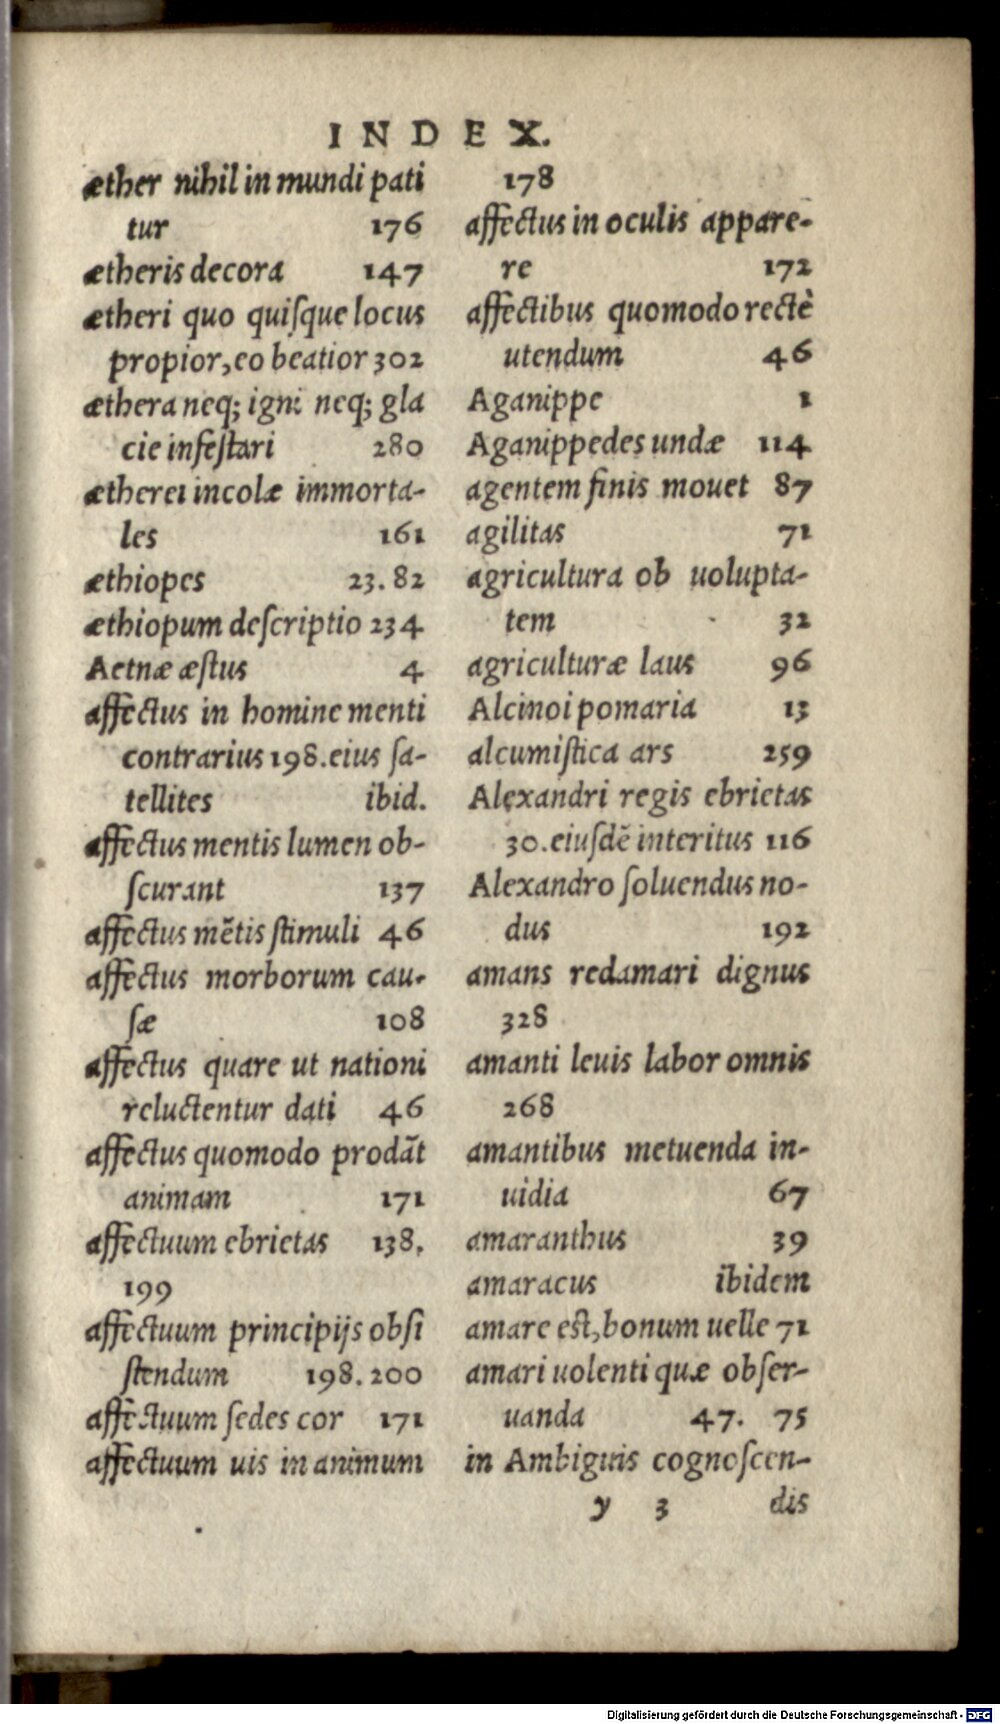 INDEX.
æther nihil in mundi pati
tur 176
ætheris decora 147
ætheri quo quiſque locus
propior, eo beatior 302
æthera neq; igni neq; gla
cie infeſtari 280
ætherei incolæ immorta-
les 161
æthiopes 23. 82
æthiopum deſcriptio 234
Aetnæ æſtus 4
affectus in homine menti
contrarius 198. eius ſa-
tellites ibid.
affectus mentis lumen ob-
ſcurant 137
affectus mẽtis ſtimuli 46
affectus morborum cau-
ſæ 108
affectus quare ut nationi
reluctentur dati 46
affectus quomodo prodãt
animam 171
affectuum ebrietas 138.
199
affectuum principijs obſi
ſtendum 198. 200
affectuum ſedes cor 171
affectuum uis in animum
178
affectus in oculis appare-
re 172
affectibus quomodo rectè
utendum 46
Aganippe 1
Aganippedes undæ 114
agentem finis mouet 87
agilitas 71
agricultura ob uolupta-
tem 32
agriculturæ laus 96
Alcinoi pomaria 13
alcumiſtica ars 259
Alexandri regis ebrietas
30. eiuſdẽ interitus 116
Alexandro ſoluendus no-
dus 192
amans redamari dignus
328
amanti leuis labor omnis
268
amantibus metuenda in-
uidia 67
amaranthus 39
amaracus ibidem
amare est, bonum uelle 71
amari uolenti quæ obſer-
uanda 47. 75
in Ambiguis cognoſcen-
y 3 dis
Digitalisierung gefördert durch die Deutsche Forschungsgemeinschaft - DFG